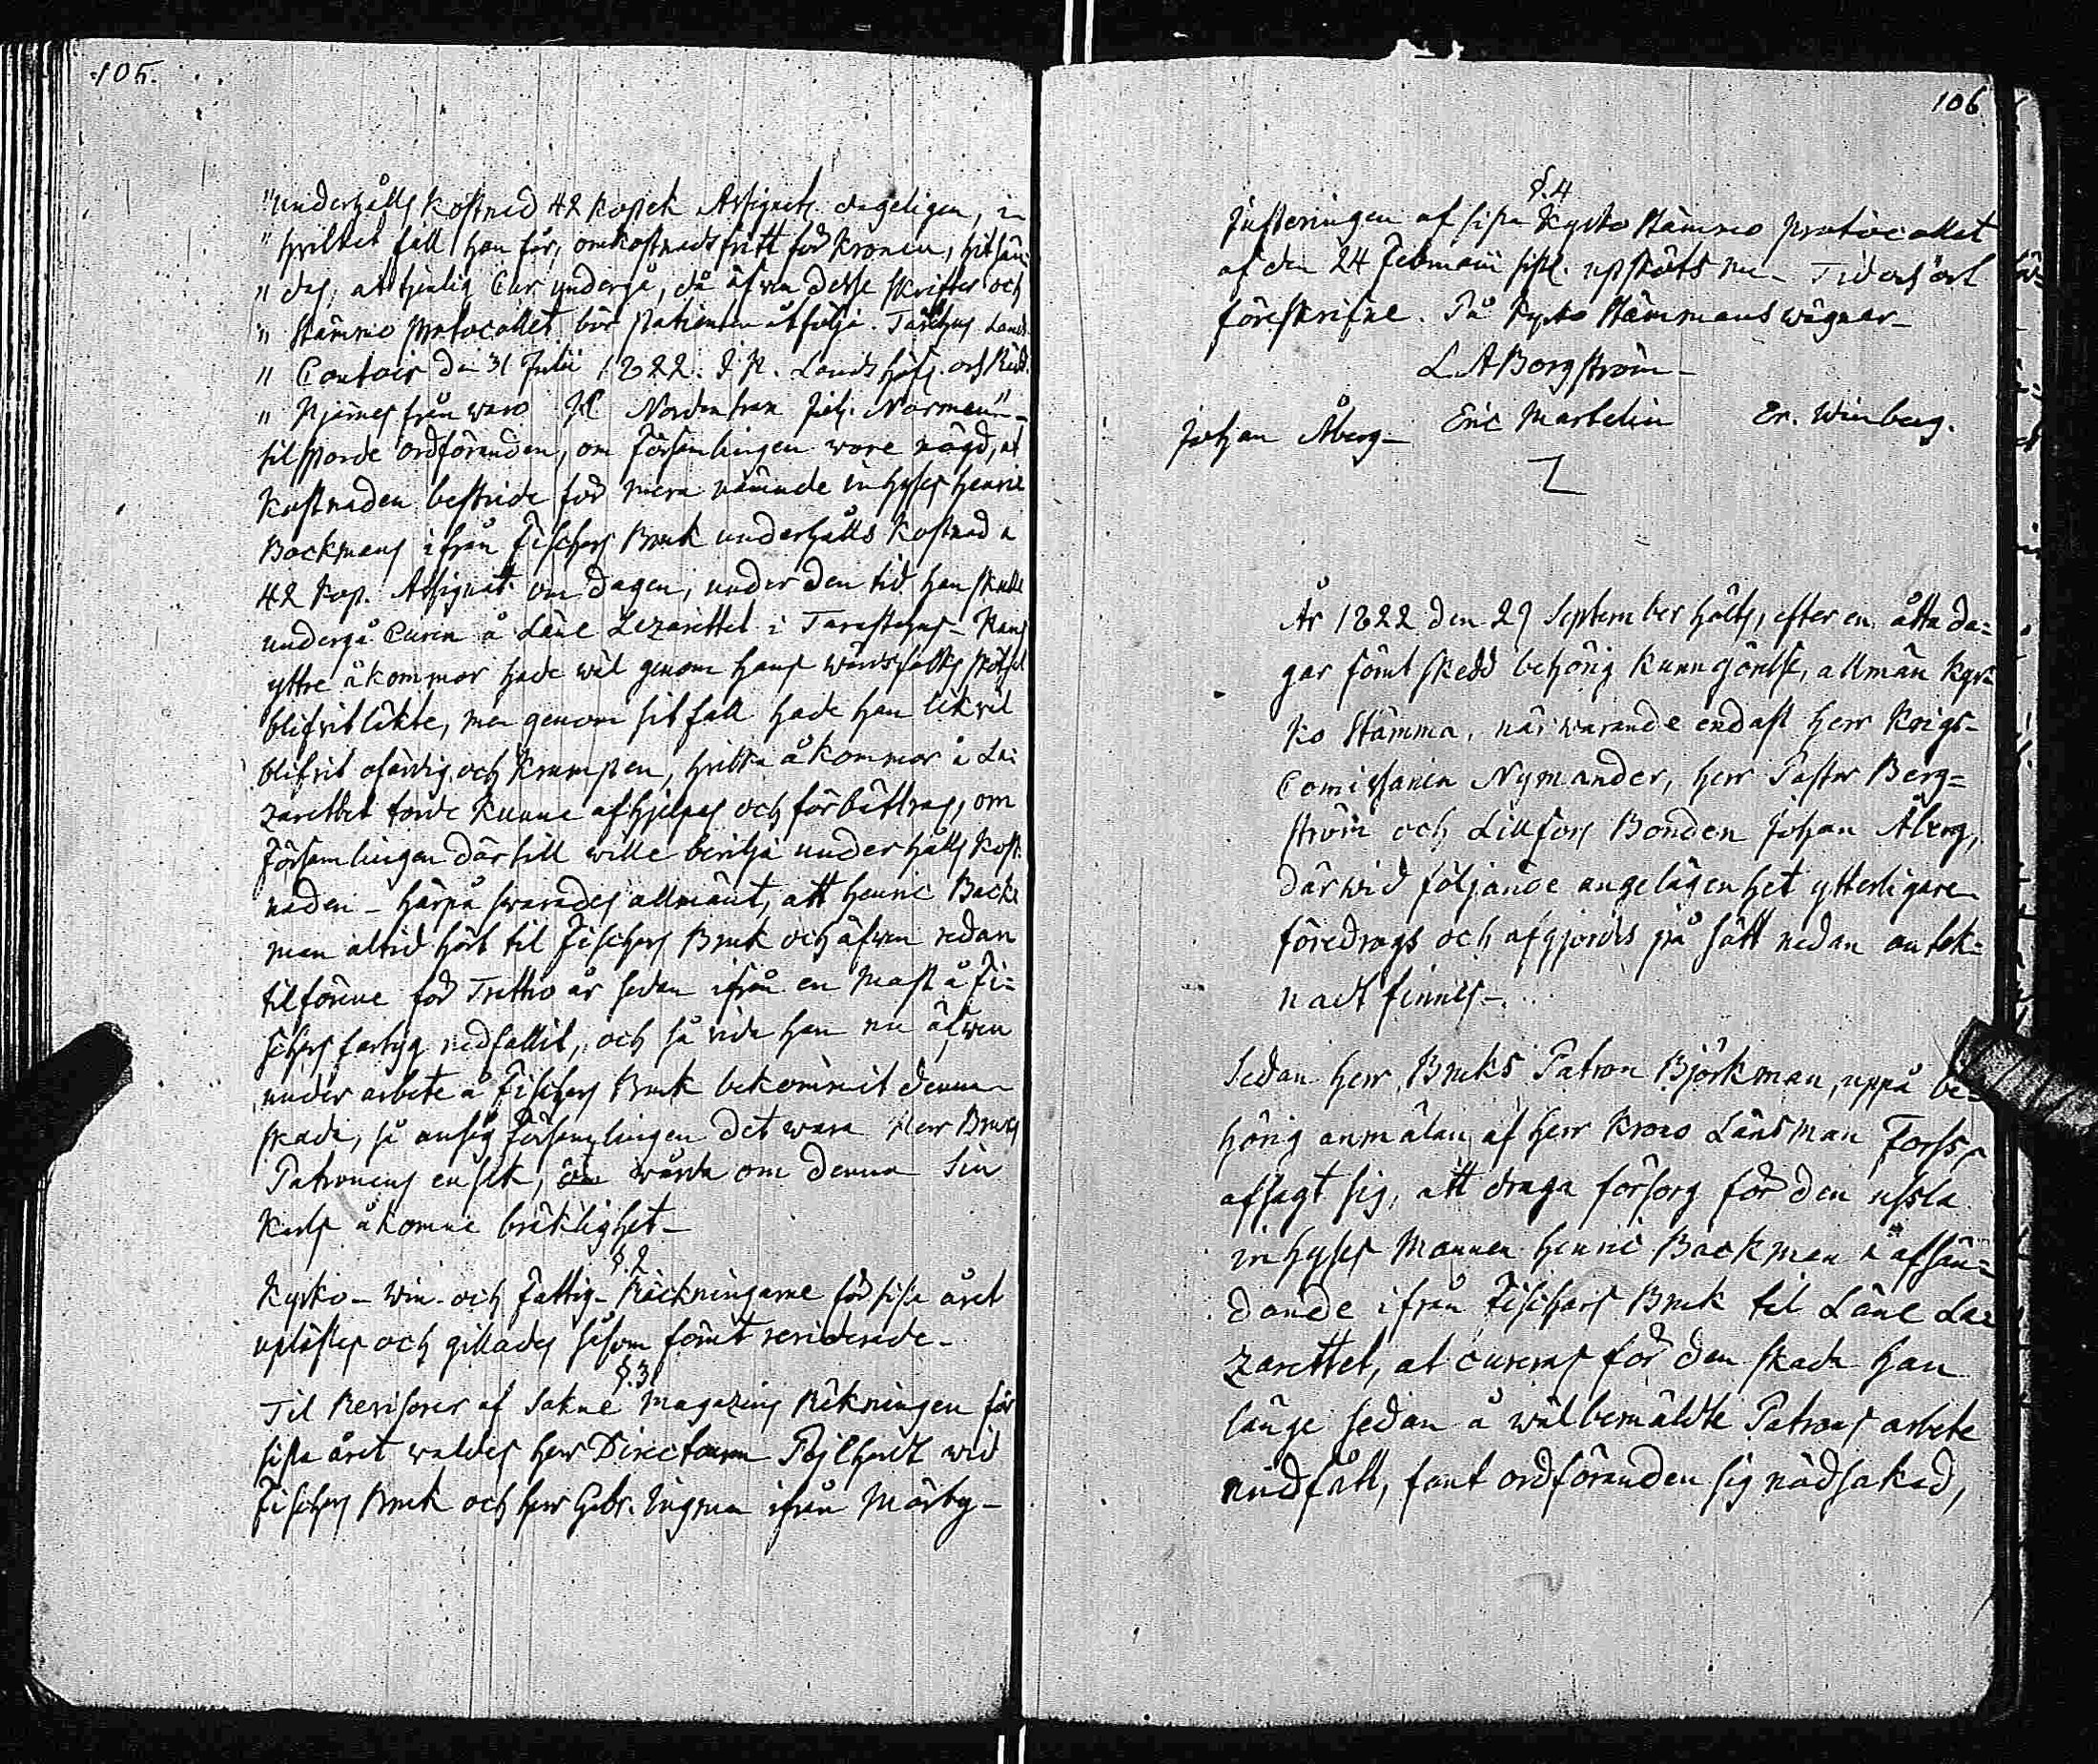 105.
"underhålls kostnad 42 kopek Assignats dageligen, i
" hvilket fall han får, omkostnadsfritt för Kronan, hitsän-
" das, at tjenlig Cur undergå, då äfven desse skrifter och
" Stämmo Protocollet bör Patienten åtfölja. Tavsthus Lands
" Contoir den 31 Julii 1822.
" Hjärnes från waro Nordenfran Joh: Normen"-
tilsporde ordföranden, om Församlingen wore nögd, at
kostnaden bestrida för mera nämnde inhyses Henric
Backmans ifrån Fischars Bruk underhålls kostnad a
42 kop. Assignat: om dagen, under den tid han skulle
undergå Curen å Läne Lazarettet i Tavastehus- Hans
yttre åkommor hade wäl genom hans wårdsfolks skötsel
blifvit läkte, men genom sit fall hade han likväl
blifvit ofärdig och krumpen, hvilka åkommor å La-
zarettet torde kunna afhjelpas och förbättras, om
Församlingen där till wille bevilja underhålls kost-
naden - Härpå svarades allmänt, att Henric Back-
man altid hört til Fischars Bruk och äfven redan
tilförene för Trettio år sedan ifrån en Mast å Fi-
schars fartyg nedfallit, och så vida han nu äfwen
under arbete å Fischars Bruk bekommit denna
skada, så ansåg Församlingen det wara Herr Bruks
Patronens ensak, wårda om denna Sin
Karls åkomne bräklighet-
§.2
Kyrko- Win- och Fattig- Räckningarne för sista året
uplästes och gillades såsom förut reviderade-
§.3
Til Revisorer af Sakne Magazins Räkningen för
sista året waldes Herr Directeuren wid
Fischars Bruk och Herr Gabr. Ingman ifrån Mörby-
106
§.4
Justeringen af sista Kyrko Stämmo Protocollet
af den 24 Februarii sistl. upsköts nu- Tid och ort
föreskrifne. På Kyrko Stämmans wägnar-
L A Borgström-
Johan Åberg- Eric Martelin Er. Winberg.
År 1822 den 29 September hölts, efter en åtta da-
gar förut skedd behörig kunngörelse, allmän Kyr-
ko Stämma, närwarande endast Herr Krigs-
Comissarien Nymander, Herr Pastor Berg-
ström och Lillfors Bonden Johan Åberg,
därwid följande angelägenhet ytterligare
föredrogs och afgjordes på sätt nedan antek-
nadt finnes-
Sedan Herr Bruks Patron Björkman, uppå be-
hörig anmälan af Herr Krono Länsman Forss,
afsagt sig, att draga försorg för den usla
inhyses Mannen Henric Backman afsän-
dande ifrån Fischars Bruk til Läne La-
zarettet, at cureras för den skada han
länge sedan å wälbemäldte Patrons arbete
undfått, fant ordföranden sig nödsakad,